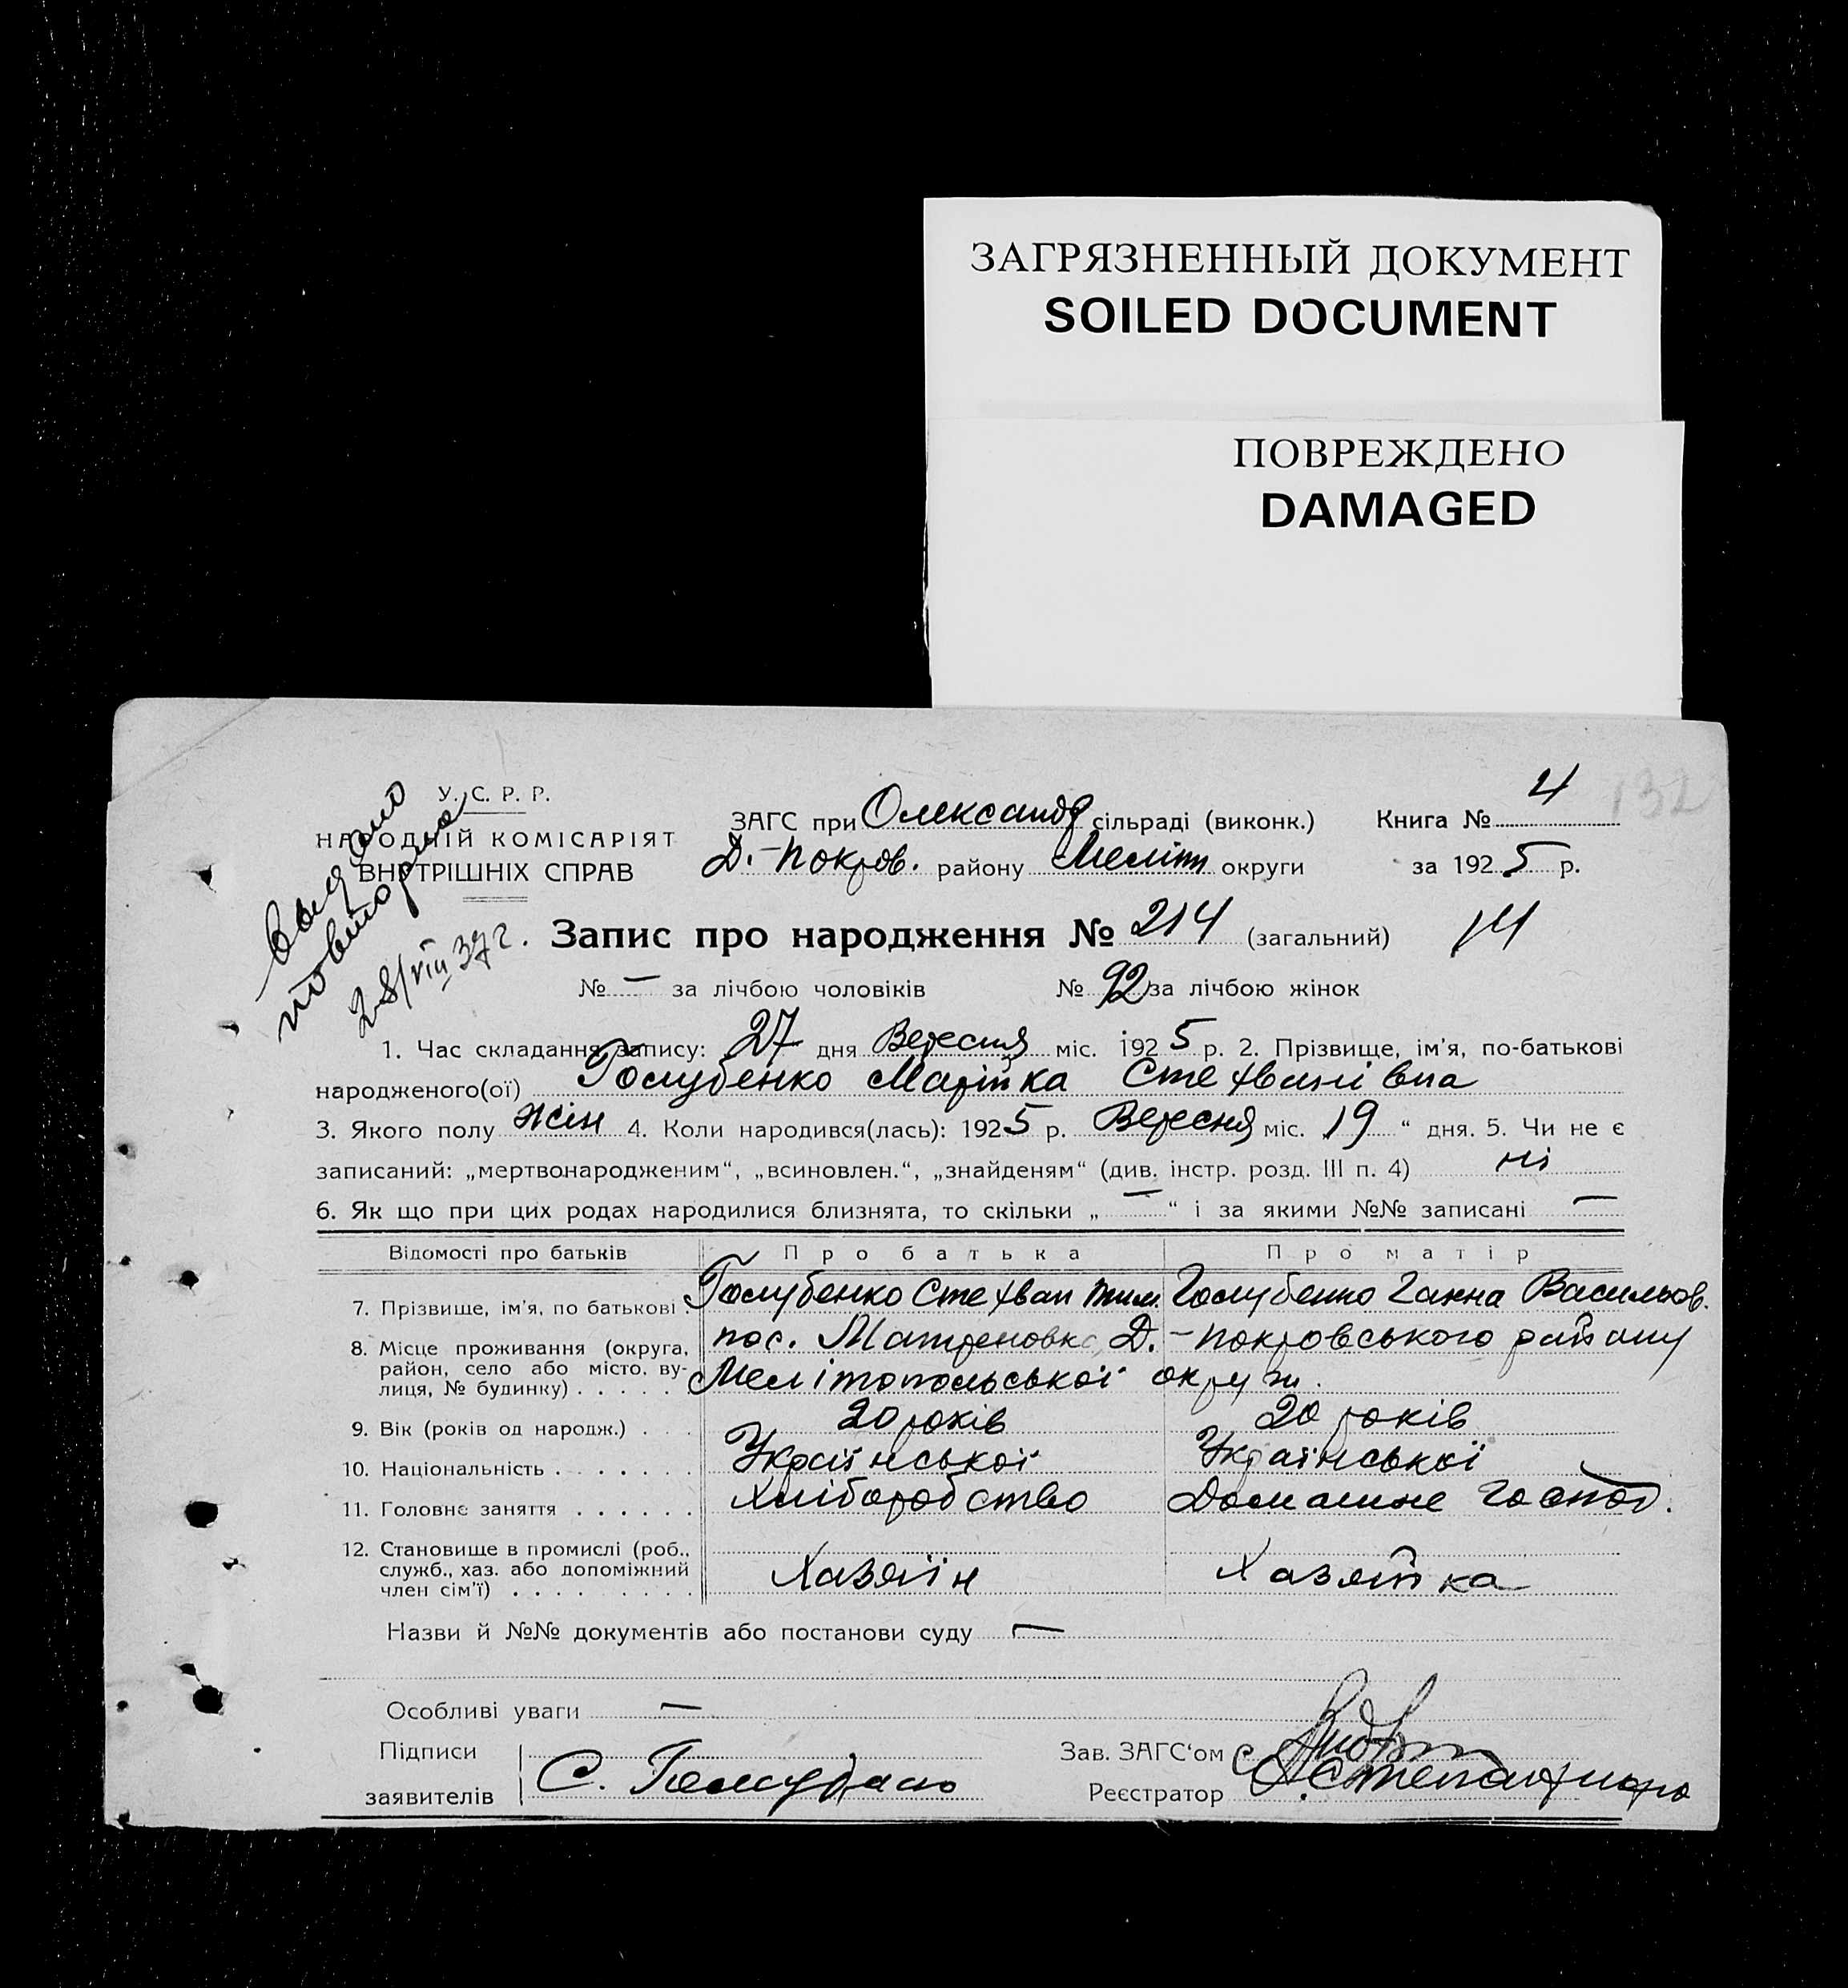 ЗАГРЯЗНЕННЫЙ ДОКУМЕНТ
SOILED DOCUMENT
ПОВРЕЖДЕНО
DAMAGED
132
У. С. Р. Р.
НАРОДНІЙ КОМІСАРІЯТ
ВНУТРІШНІХ СПРАВ
Выдано
повторно
28/VIII 37 г.
ЗАГС при Олександр сільраді (виконк.) Книга № 4
Д.-Покров. району Меліт округи за 1925 р.
Запис про народження № 214 (загальний)
№ — за лічбою чоловіків № 92 за лічбою жінок
1. Час складання запису: 27 дня Вересня міс. 1925 р. 2. Прізвище, ім'я, по-батькові
народженого(ої) Голубенко Марійка Стехванівна
3. Якого полу жін 4. Коли народився(лась): 1925 р. Вересня міс. „19 “ дня. 5. Чи не є
записаний: „мертвонародженим“, „всиновлен.“, „знайденям“ (див. інстр. розд. III п. 4) ні
6. Як що при цих родах народилися близнята, то скільки „ — “ і за якими №№ записані —
Відомості про батьків Про батька Про матір
7. Прізвище, ім'я, по батькові. Голубенко Стехван Тим. Голубенко Ганна Васильов.
8. Місце проживання (округа, район, село або місто, вулиця, № будинку) . . . . . пос. Матреновка Д.-Покровського району
Мелітопольської округи.
9. Вік (років од народж.) . . . 20 років 20 років
10. Національність . . . . . . . Української Української
11. Головне заняття . . . . . . Хліборобство Домашне Господ.
12. Становище в промислі (роб., служб., хаз. або допоміжний член сім'ї) . . . . . . . . Хазяїн Хазяйка
Назви й №№ документів або постанови суду —
Особливі уваги —
Підписи
заявителів С. Голубенко
Зав. ЗАГС‘ом
Реєстратор